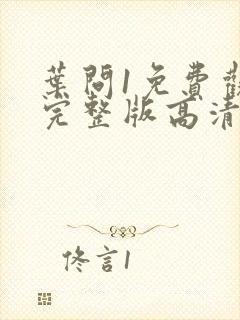 葉問1免費觀
完整版高清
佟言1